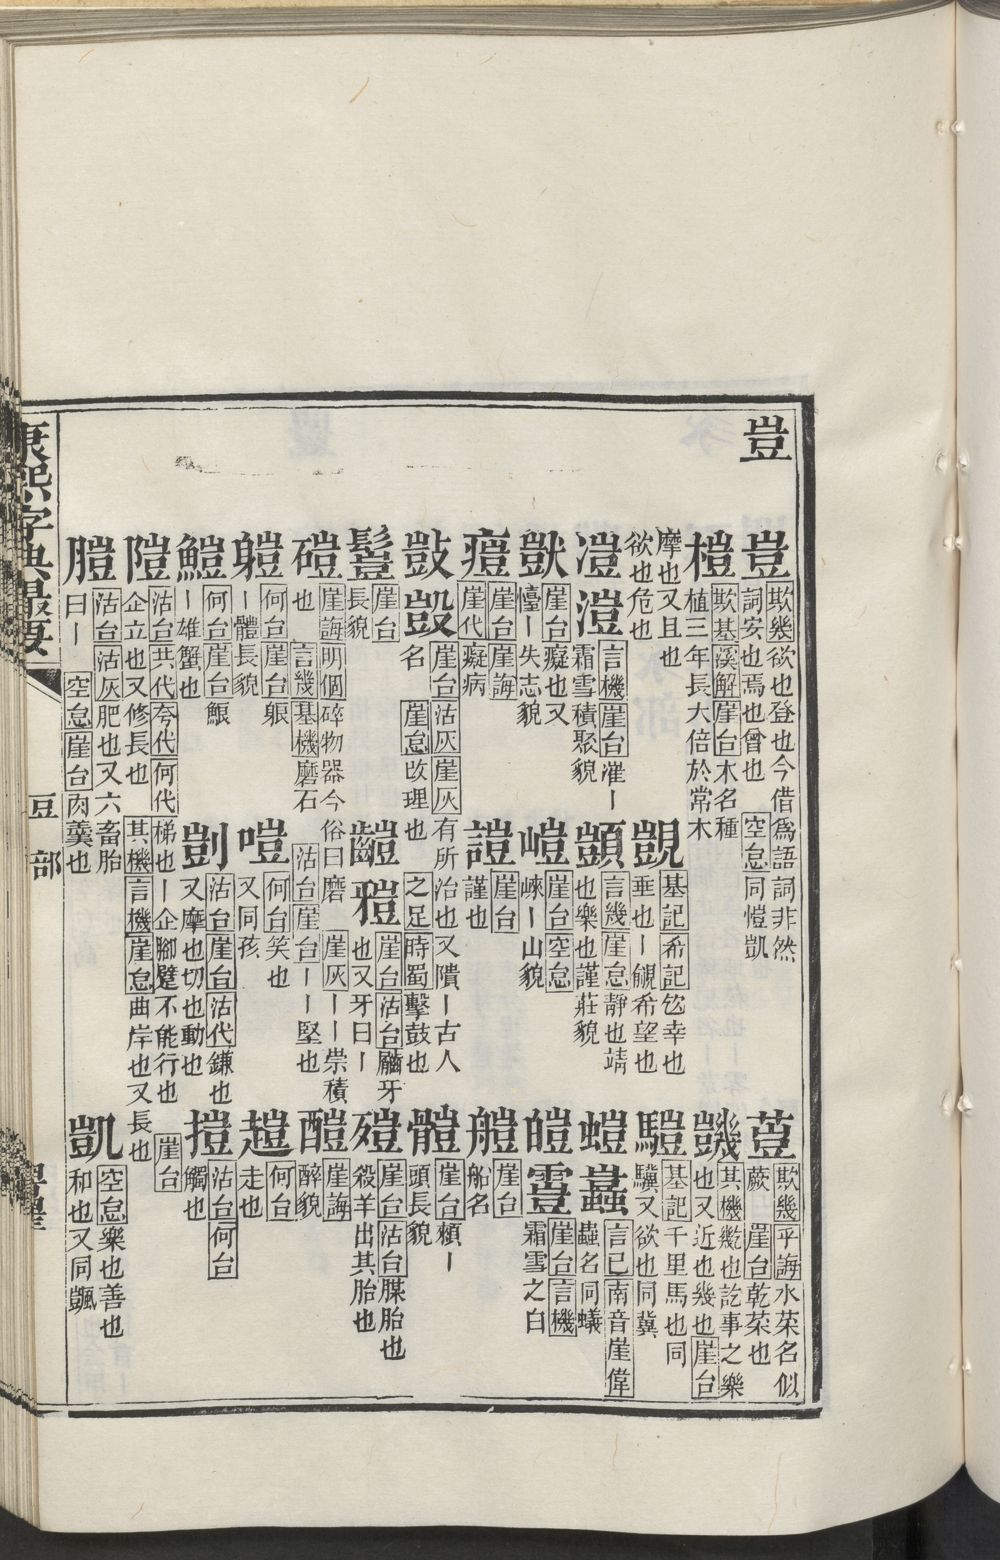 豈
豈 欺幾欲也登也今借爲語詞非然
詞安也焉也曾也 空怠同愷凱
荳 欺幾平誨水菜名似
蕨 崖台乾菜也
榿 欺基溪解崖台木名種
植三年長大倍於常木
鐖 其機幾也訖事之樂
也又近也幾也崖台
摩也又且也
欲也危也
覬 基記希記㐹幸也
垂也丨覦希望也
驥 基記千里馬也同
驥又欲也同冀
溰溰 言機崖台漼丨
霜雪積聚貌
顗 言幾崖怠靜也靖
也樂也謹莊貌
螘 言已南音崖偉
蟲名同蟻
獃 崖台癡也又
懛丨失志貌
嵦 崖台空怠
崍丨山貌
皚 崖台言機
霜雪之白
㾢 崖台崖誨
崖代癡病
譺 崖台
謹也
艠 崖台
船名
敱 崖台沽灰崖灰有所治也又隤丨古人
名 崖怠改理也 之足時蜀擊鼓也
體 崖台頼丨
頭長貌
崖台
長貌
齝 崖台沽台齝牙
也又牙曰丨
殪 崖台沽台腜胎也
殺羊出其胎也
磑 崖誨明個碎物器今俗曰磨 崖灰丨丨崇積
也 言幾基機磨石 沽台崖台丨丨堅也
醷 崖誨
醉貌
軆 何台崖台躴
丨體長貌
嘊 何台笑也
又同孩
趩 何台
走也
鱧 何台崖台鰀
丨雄蟹也
剴 沽台崖台沽代鎌也
又摩也切也動也
搢 沽台何台
觸也
隑 沽台共代夸代何代梯也丨企腳躄不能行也 崖台
企立也又修長也 其機言機崖怠曲岸也又長也
膯 沽台沽灰肥也又六畜胎
曰丨 空怠崖台肉羹也
凱 空怠樂也善也
和也又同颽
康熙字典最要
豆部